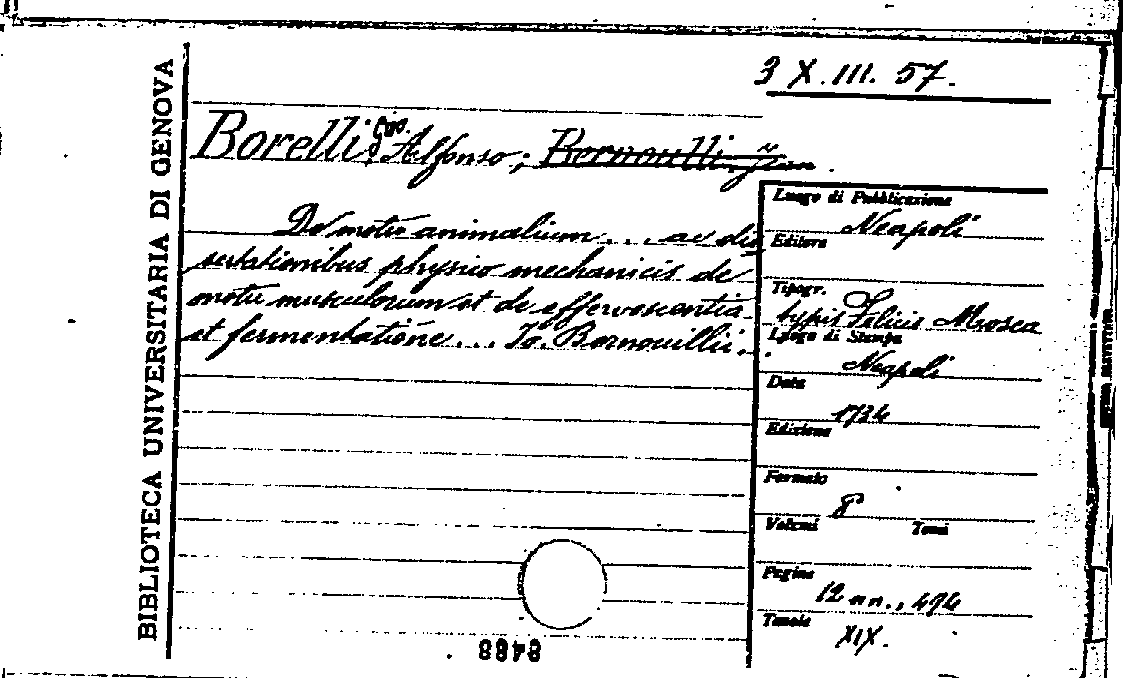 3 X.III. 57.
Borelli Gio. Alfonso; Bernoulli Jean.
De motu animalium... ac dis
sertationibus physico mechanicis de
motu musculorum et de effervescentia
et fermentatione... Jo. Bernouillii.
BIBLIOTECA UNIVERSITARIA DI GENOVA
Luogo di Pubblicazione
Neapoli
Editore
Tipogr.
typis Felicis Mosca
Luogo di Stampa
Neapoli
Data
1734
Edizione
Formato
8°
Volumi Tomi
Pagine
12 nn., 494
Tavole
XIX.
8488